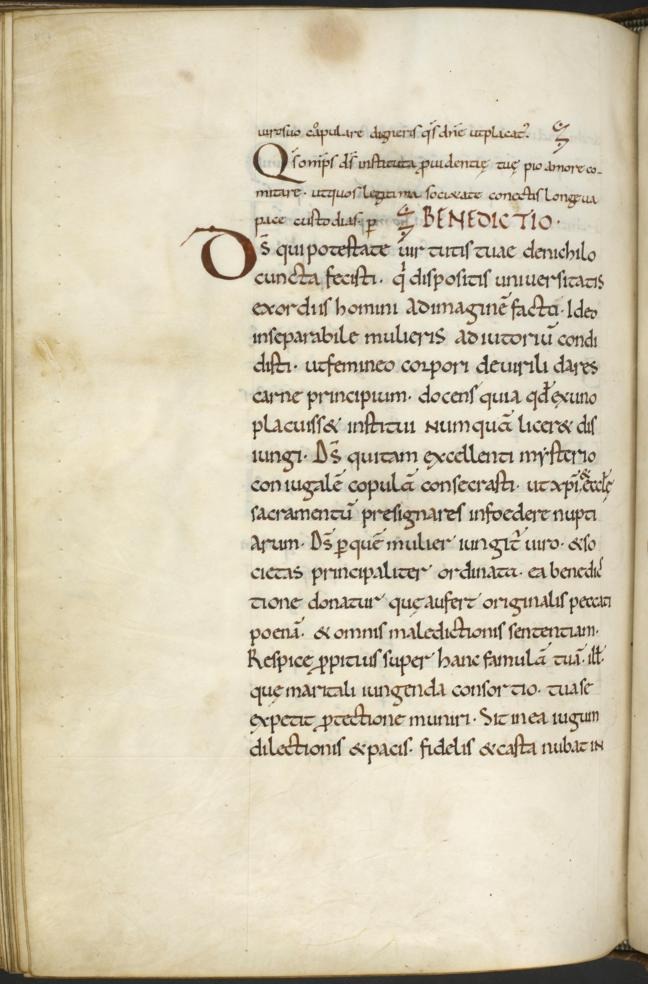 virtuo copulare digneris q̄s dn̄e ut placat᷒.
Qs om̄ps ds̄ instituta ꝓuidentię tuę pio amore co-
mitare · ut quos legitima societate conectis longeua
pace custodias · ꝑ BENEDICTIO ·
Ds̄ qui potestate uirtutis tuae de nichilo
cuncta fecisti · q̇ dispositis uniuersitatis
exordiis homini ad imaginē facto · Ideo
inseparabile mulieris adiutoriū condi
disti · ut femineo corpori de uirili dares
carne principium · docens quia qđ ex uno
placuiss& institui numquā licer& dis
iungi · Ds̄ qui tam excellenti mysterio
coniugalē copulā consecrasti · ut xp̄i & ęcclę
sacramentū presignares in foedere nupti
arum · Ds̄ ꝑ quē mulier iungit̄ uiro · & so
cietas principaliter ordinata · ea benedic̄
tione donatur quę aufert originalis peccati
poenā · & omnis maledictionis sententiam ·
Respice ꝓpitius super hanc famulā tuā · iłł ·
quę maritali iungenda consortio · tua se
expetit ꝓtectione muniri · Sit in ea iugum
dilectionis & pacis · fidelis & casta nubat in